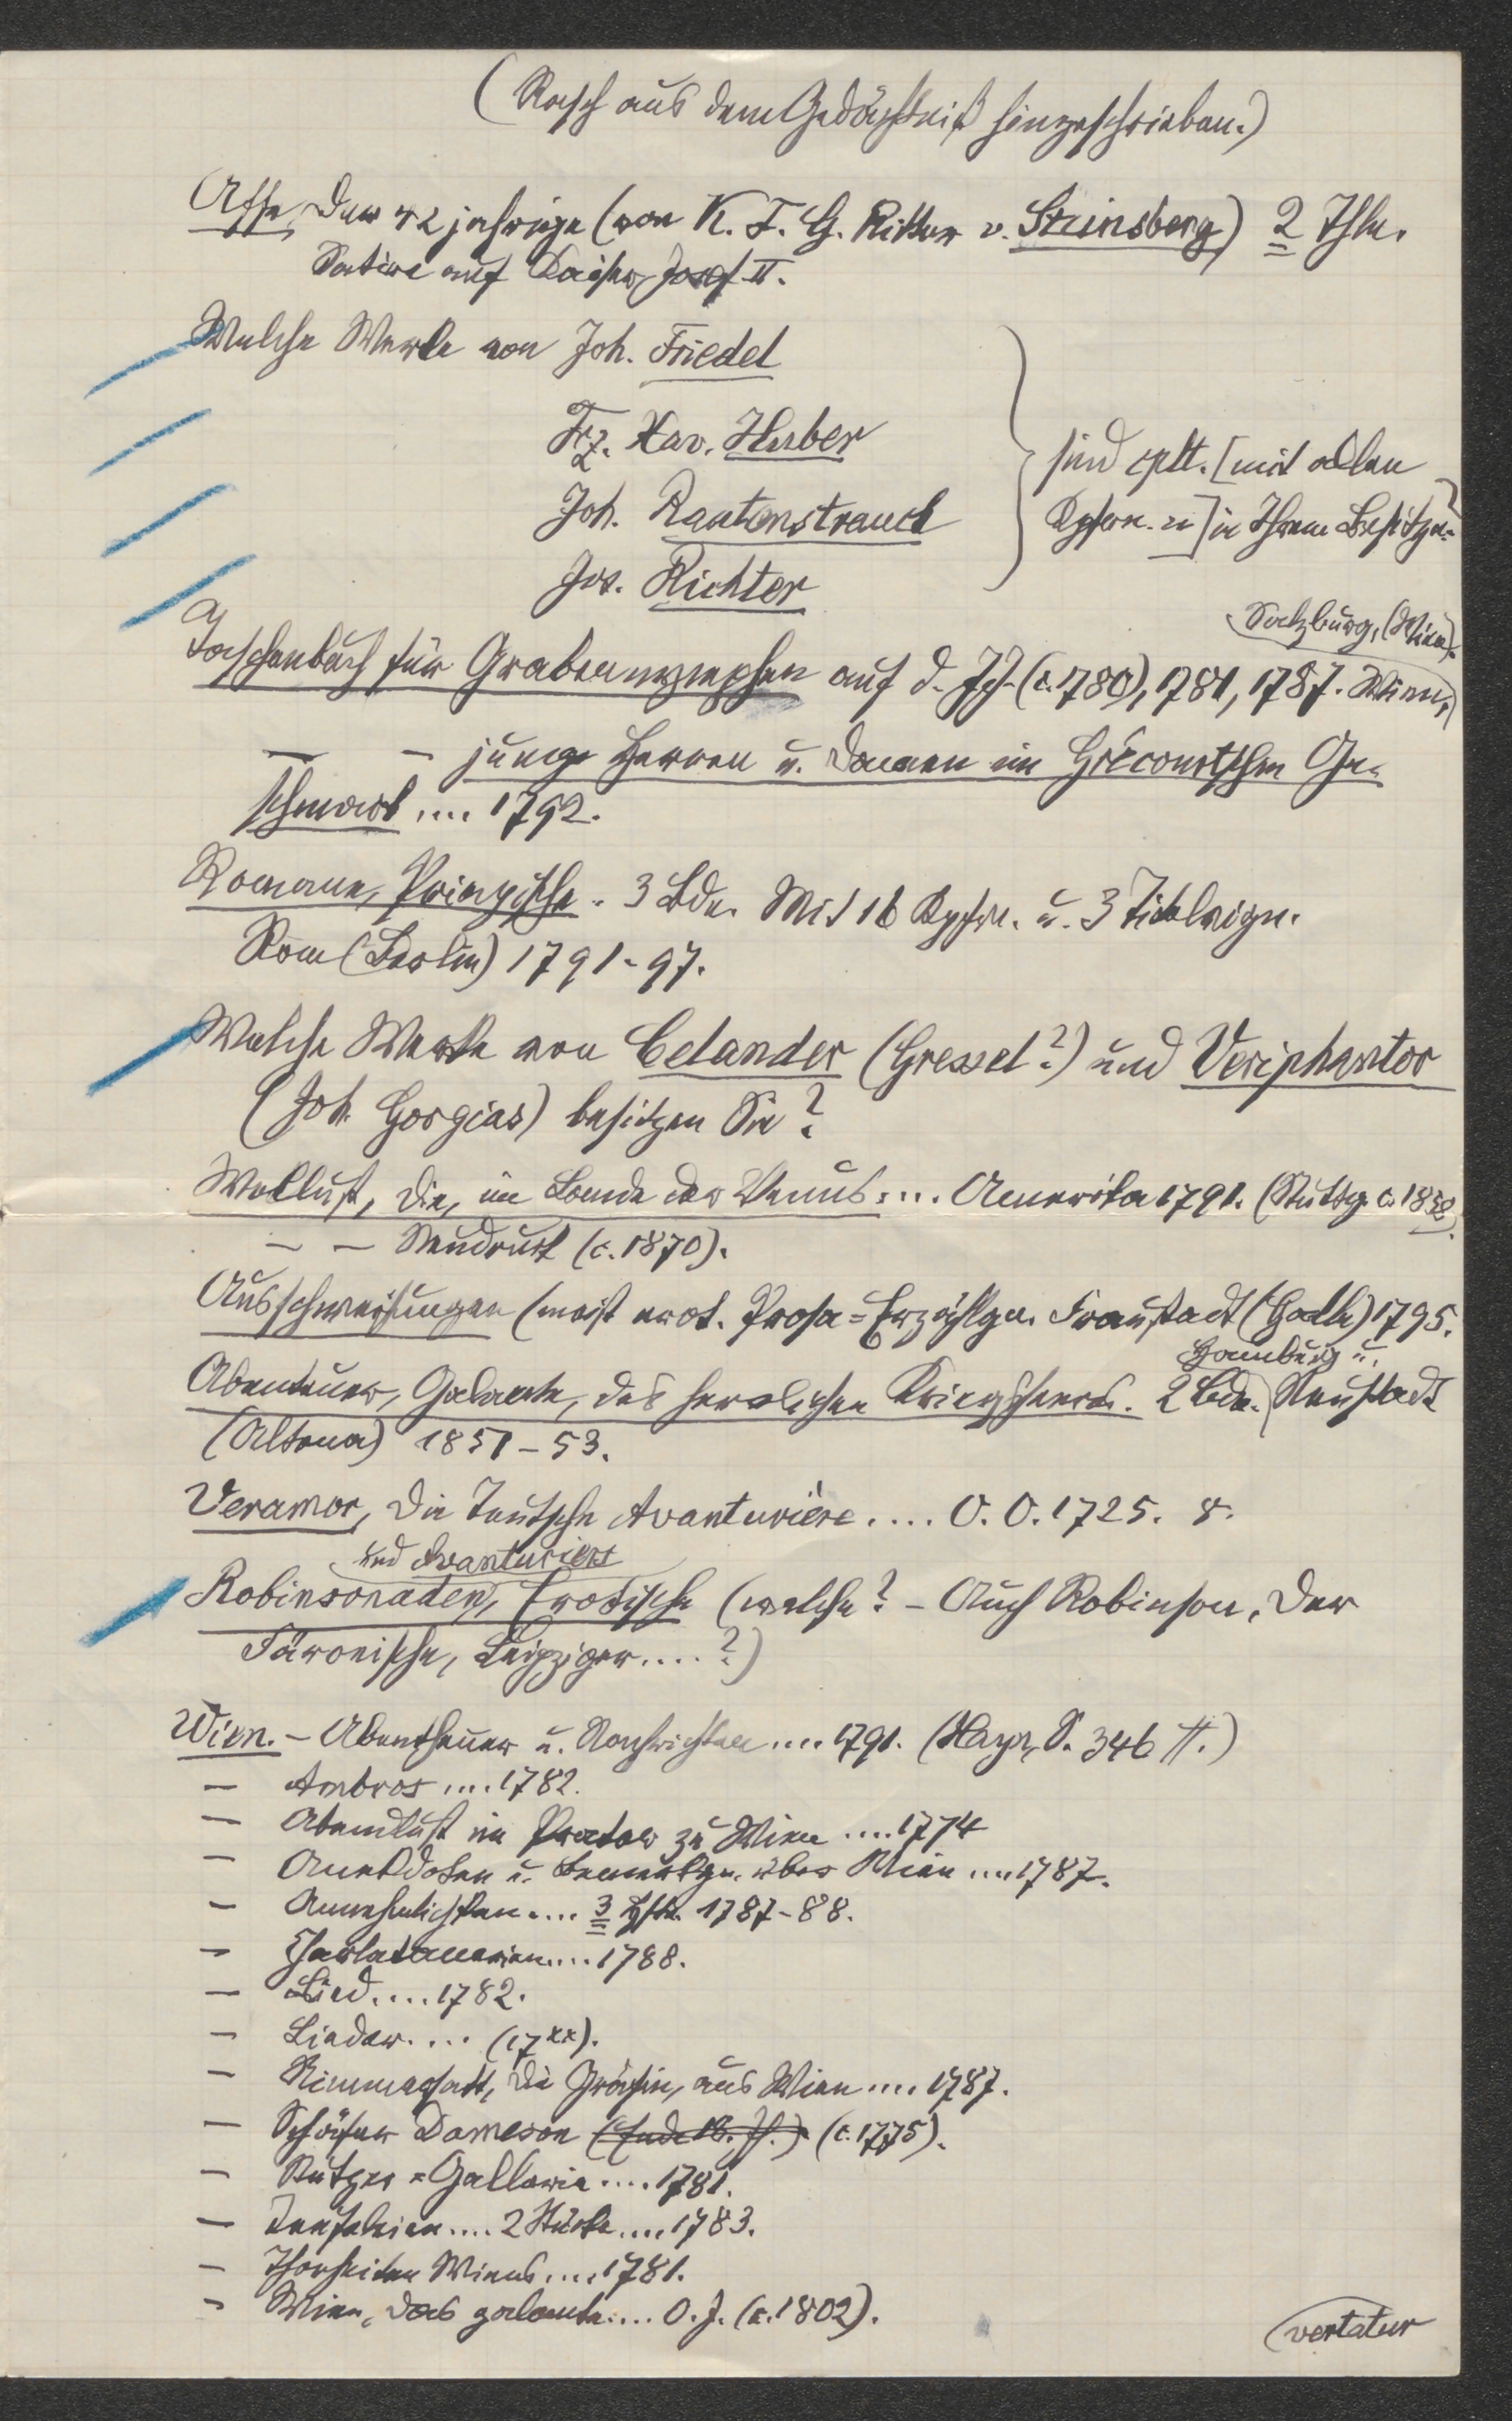 (Rasch aus dem Gedächtniß hingeschrieben.)
Affe, Der 42 jährige (von K. F. G. Ritter v. Steinsberg) 2 Thle.
Satire auf Kaiser Josef II.
Welche Werke von Joh. Friedel
Frz. Xav. Huber
Joh. Rautenstrauch
Jos. Richter
sind cplt. [mit allen
Kpfern. ] in Ihrem Besitze?
Taschenbuch für Grabennymphen auf d. J. (c. 1780), 1781, 1787. Wien,
Salzburg, (Wien).
— — junge Herren u. Damen im Grécourtschen Ge-
schmack .... 1792.
Romane, Priapische. 3 Bde. Mit 16 Kpfrn. u. 3 Titelvign.
Rom (Berlin) 1791-97.
Welche Werke von Celander (Gressel?) und Veriphantor
(Joh. Gorgias) besitzen Sie?
Wollust, Die, im Lande der Venus .... Amerika 1791. (Stuttg. c. 1850)
— — Neudruck (c. 1870).
Ausschweifungen (meist erot. Prosa-Erzählgn. Fraustadt (Halle) 1795.
Abenteuer, Galante, des herrlichen Kriegsheers. 2 Bde. Hamburg u. Neustadt
(Altona) 1851-53.
Veramor, Die Teutsche Avanturière .... O. O. 1725. 8.
und Avanturiers
Robinsonaden, Erotische (welche? - Auch Robinson, Der
Färoeische, Leipziger .... ?)
Wien. - Abentheuer u. Nachrichten .... 1791. (Hayn, S. 346 ff.)
— Ambros .... 1782.
— Abendlust im Prater zu Wien .... 1774
— Anekdoten u. Bemerkgn. über Wien .... 1787.
— Annehmlichkten .... 3 Hfte. 1787-88.
— Charlatanerien .... 1788.
— Lied .... 1782.
— Lieder .... (17xx).
— Nimmersatt, Die Gräfin, aus Wien .... 1787.
— Schäfer Dameson (Ende 18. Jh.) (c. 1775).
— Stutzer-Gallerie .... 1781.
— Teufeleien .... 2 Stücke .... 1783.
— Thorheiten Wiens .... 1781.
— Wien, das galante .... O. J. (c. 1802).
vertatur